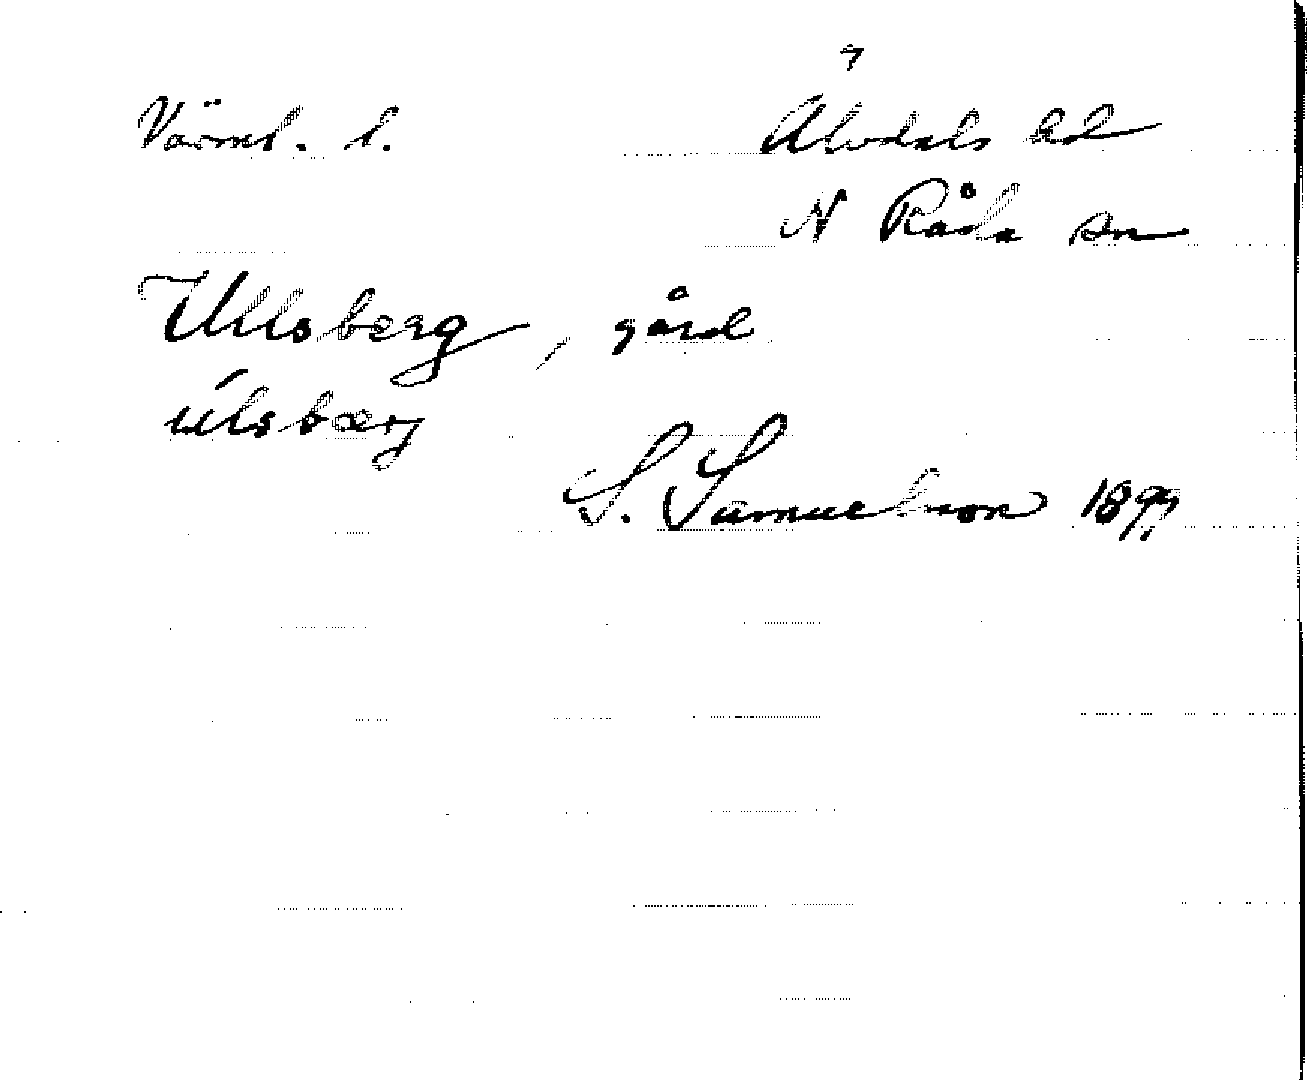 Värml. l. Älvdals hd
N Råda sn
Ullsberg, gård
úlsbærj
S. Samuelsson 1899